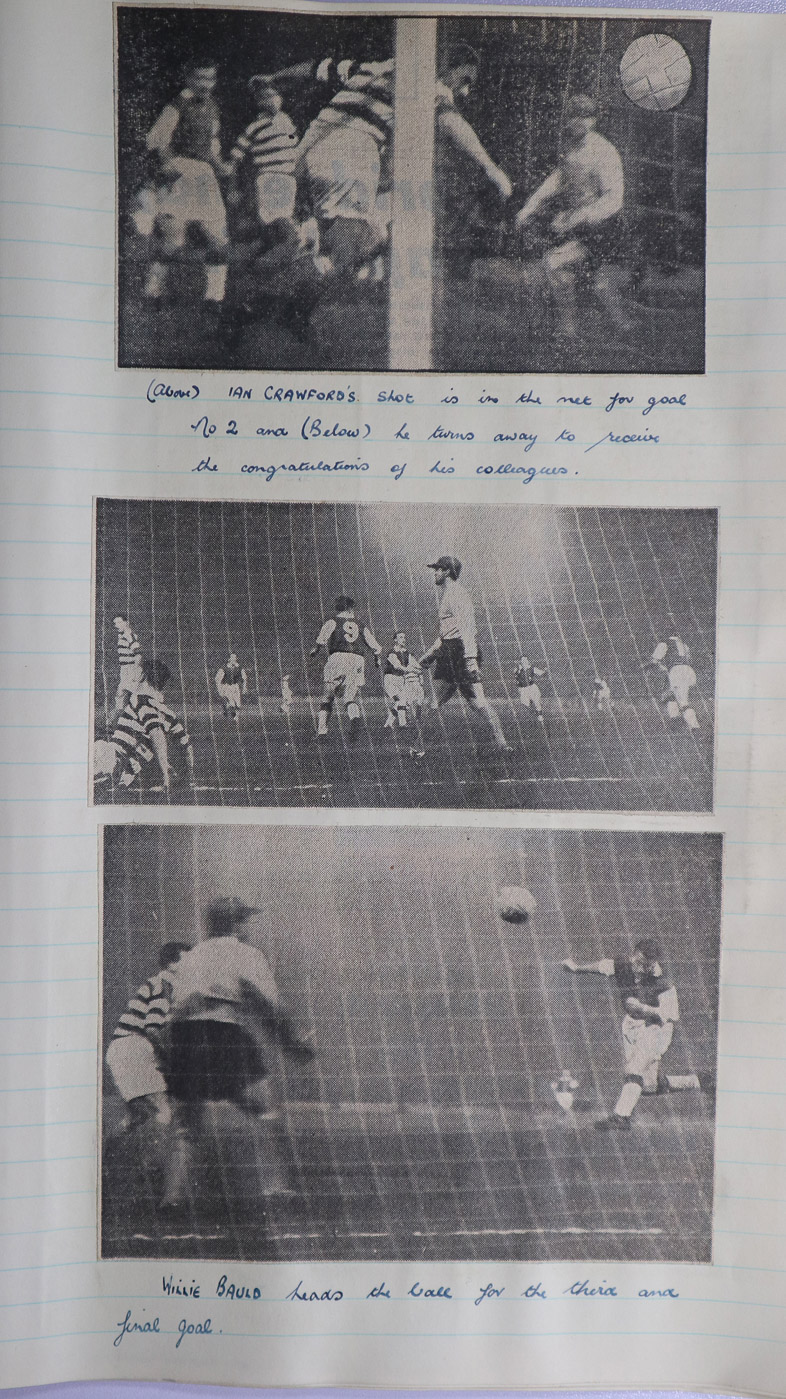 (Above) IAN CRAWFORD'S. shot is in the net for goal
No 2 and (Below) he turns away to receive
the congratulations of his colleagues.
9
WILLIE BAULD heads the ball for the third and
final goal.